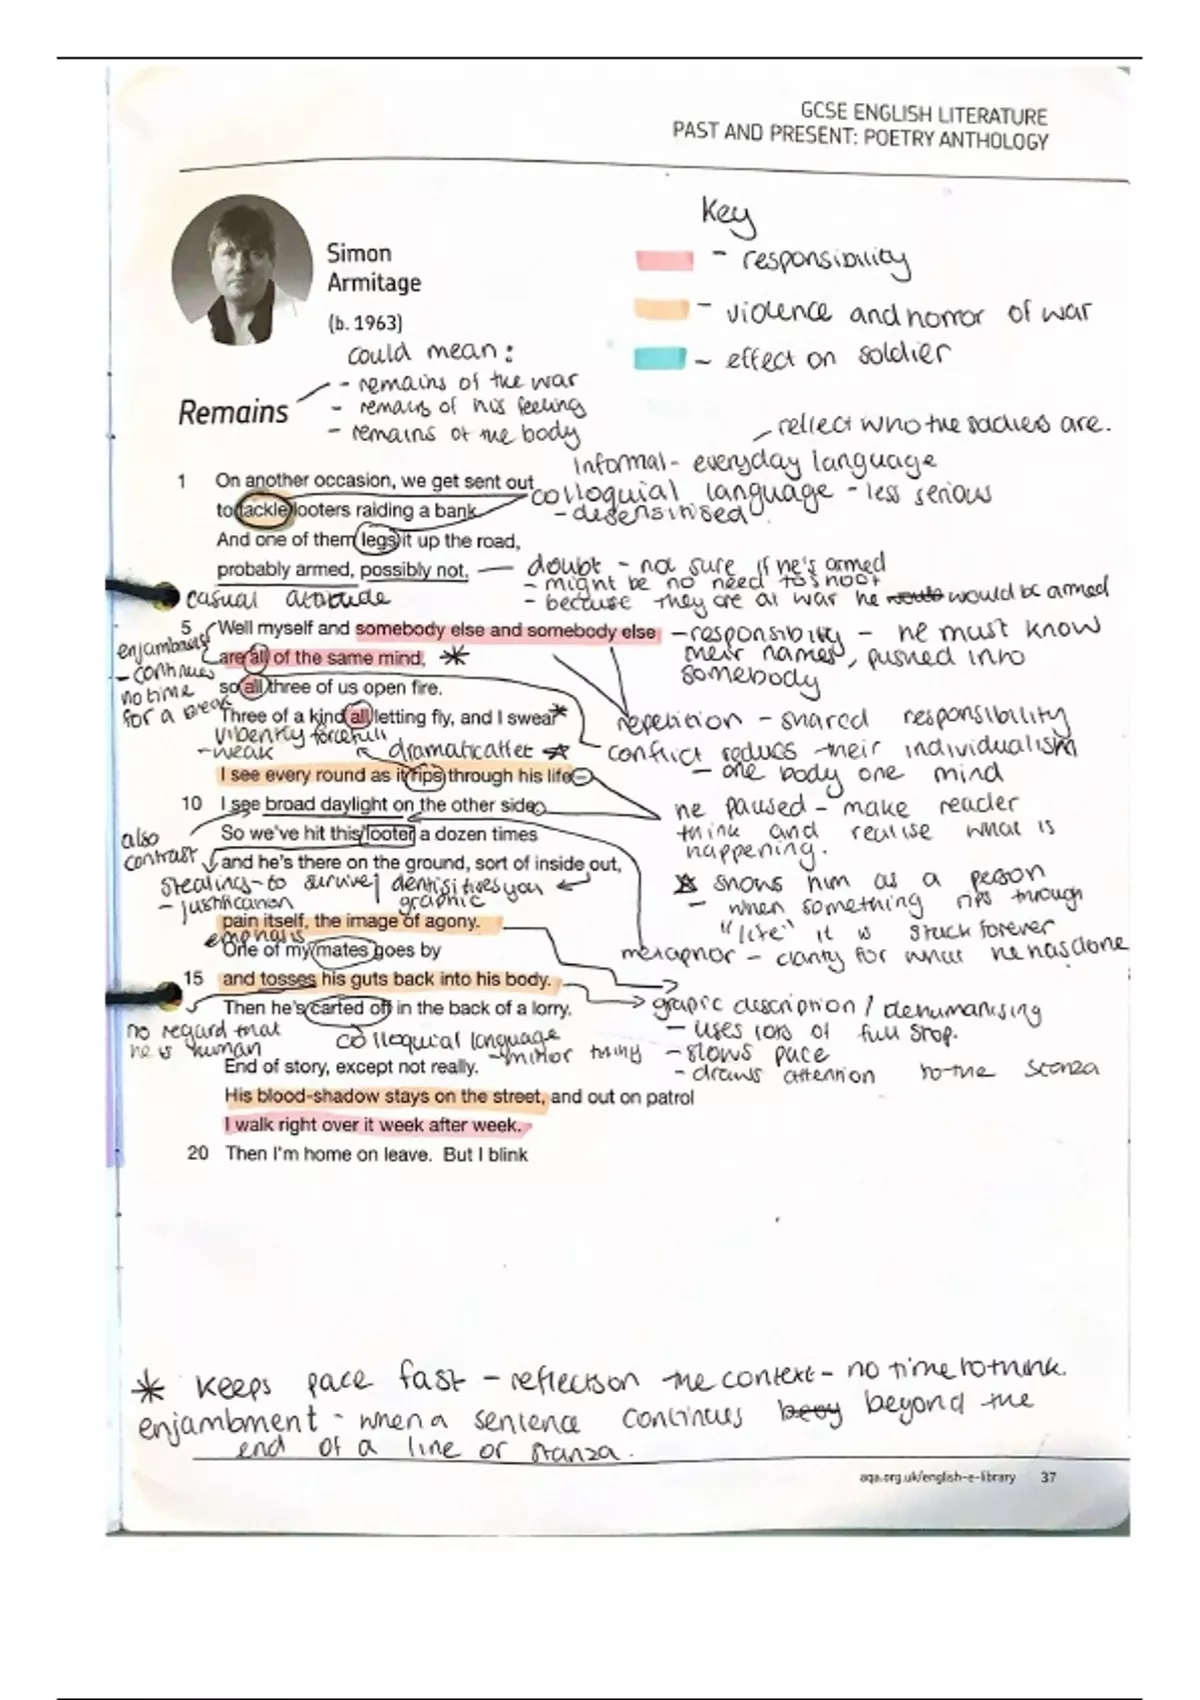 GCSE ENGLISH LITERATURE
PAST AND PRESENT: POETRY ANTHOLOGY
Key
- responsibility
- violence and horror of war
- effect on soldier
Simon
Armitage
(b. 1963)
could mean:
- remains of the war
- remains of his feeling
- remains of the body
Remains
reflect who the soldiers are.
Informal - everyday language
colloquial language - less serious
- desensitised
1 On another occasion, we get sent out
to tackle looters raiding a bank.
And one of them legs it up the road,
probably armed, possibly not.
casual attitude
doubt - not sure if he's armed
- might be no need to shoot
- because they are at war he would be armed
5 Well myself and somebody else and somebody else
are all of the same mind,
so all three of us open fire.
Three of a kind all letting fly, and I swear
enjambment
- continues
no time
for a break
- responsibility - he must know
their names, pushed into
somebody
repetition - shared responsibility
conflict reduces their individualism
- one body one mind
violently forcefull
- weak
dramatic affect
I see every round as it rips through his life –
10 I see broad daylight on the other side.
So we've hit this looter a dozen times
and he's there on the ground, sort of inside out,
he paused - make reader
think and realise what is
happening.
also
contrast
stealings - to survive
- justification
graphic
shows him as a person
- when something rips through
"life" it is stuck forever
pain itself, the image of agony.
emphasis
One of my mates goes by
15 and tosses his guts back into his body.
Then he's carted off in the back of a lorry.
metaphor - clarity for what he has done
grapic description / dehumanising
- uses lots of full stop.
- slows pace
- draws attention to the stanza
no regard that
he is human
colloquial language
- minor thing
End of story, except not really.
His blood-shadow stays on the street, and out on patrol
I walk right over it week after week.
20 Then I'm home on leave. But I blink
* Keeps pace fast - reflects on the context - no time to think.
enjambment - when a sentence continues beyond the
end of a line or stanza.
aqa.org.uk/english-e-library 37